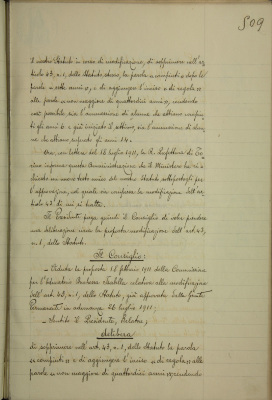 509
il nostro Statuto in corso di modificazione, di sopprimere nell'ar
ticolo 43, n. 1, dello Statuto stesso, la parola « compiuti » dopo le
parole « sette anni », e di aggiungere l'inciso « di regola »
alle parole « non maggiore di quattordici anni », rendendo
così possibile sia l'ammissione di alunne che abbiano compiu
ti gli anni 6 e già iniziato il settimo, sia l'ammissione di alun
ne che abbiano superato gli anni 14.
Ora, con lettera del 12 luglio 1911, la R. Prefettura di To
rino informa questa Amministrazione che il Ministero ha ri
chiesto un nuovo testo unico del nostro Statuto sottopostogli per
l'approvazione, nel quale sia compresa la modificazione dell'ar
ticolo 43 di cui si tratta.
Il Presidente prega quindi il Consiglio di voler prendere
una deliberazione circa la proposta modificazione dell'art. 43,
n. 1, dello Statuto.
Il Consiglio:
- Veduta la proposta 15 febbraio 1911 della Commissione
per l'Educatorio Duchessa Isabella relativa alla modificazione
dell'art. 43, n. 1, dello Statuto, già approvata dalla Giunta
Permanente in adunanza 26 luglio 1911;
- Sentito il Presidente, Relatore;
delibera
di sopprimere nell'art. 43, n. 1, dello Statuto la parola
« compiuti » e di aggiungere l'inciso « di regola » alle
parole « non maggiore di quattordici anni » rendendo